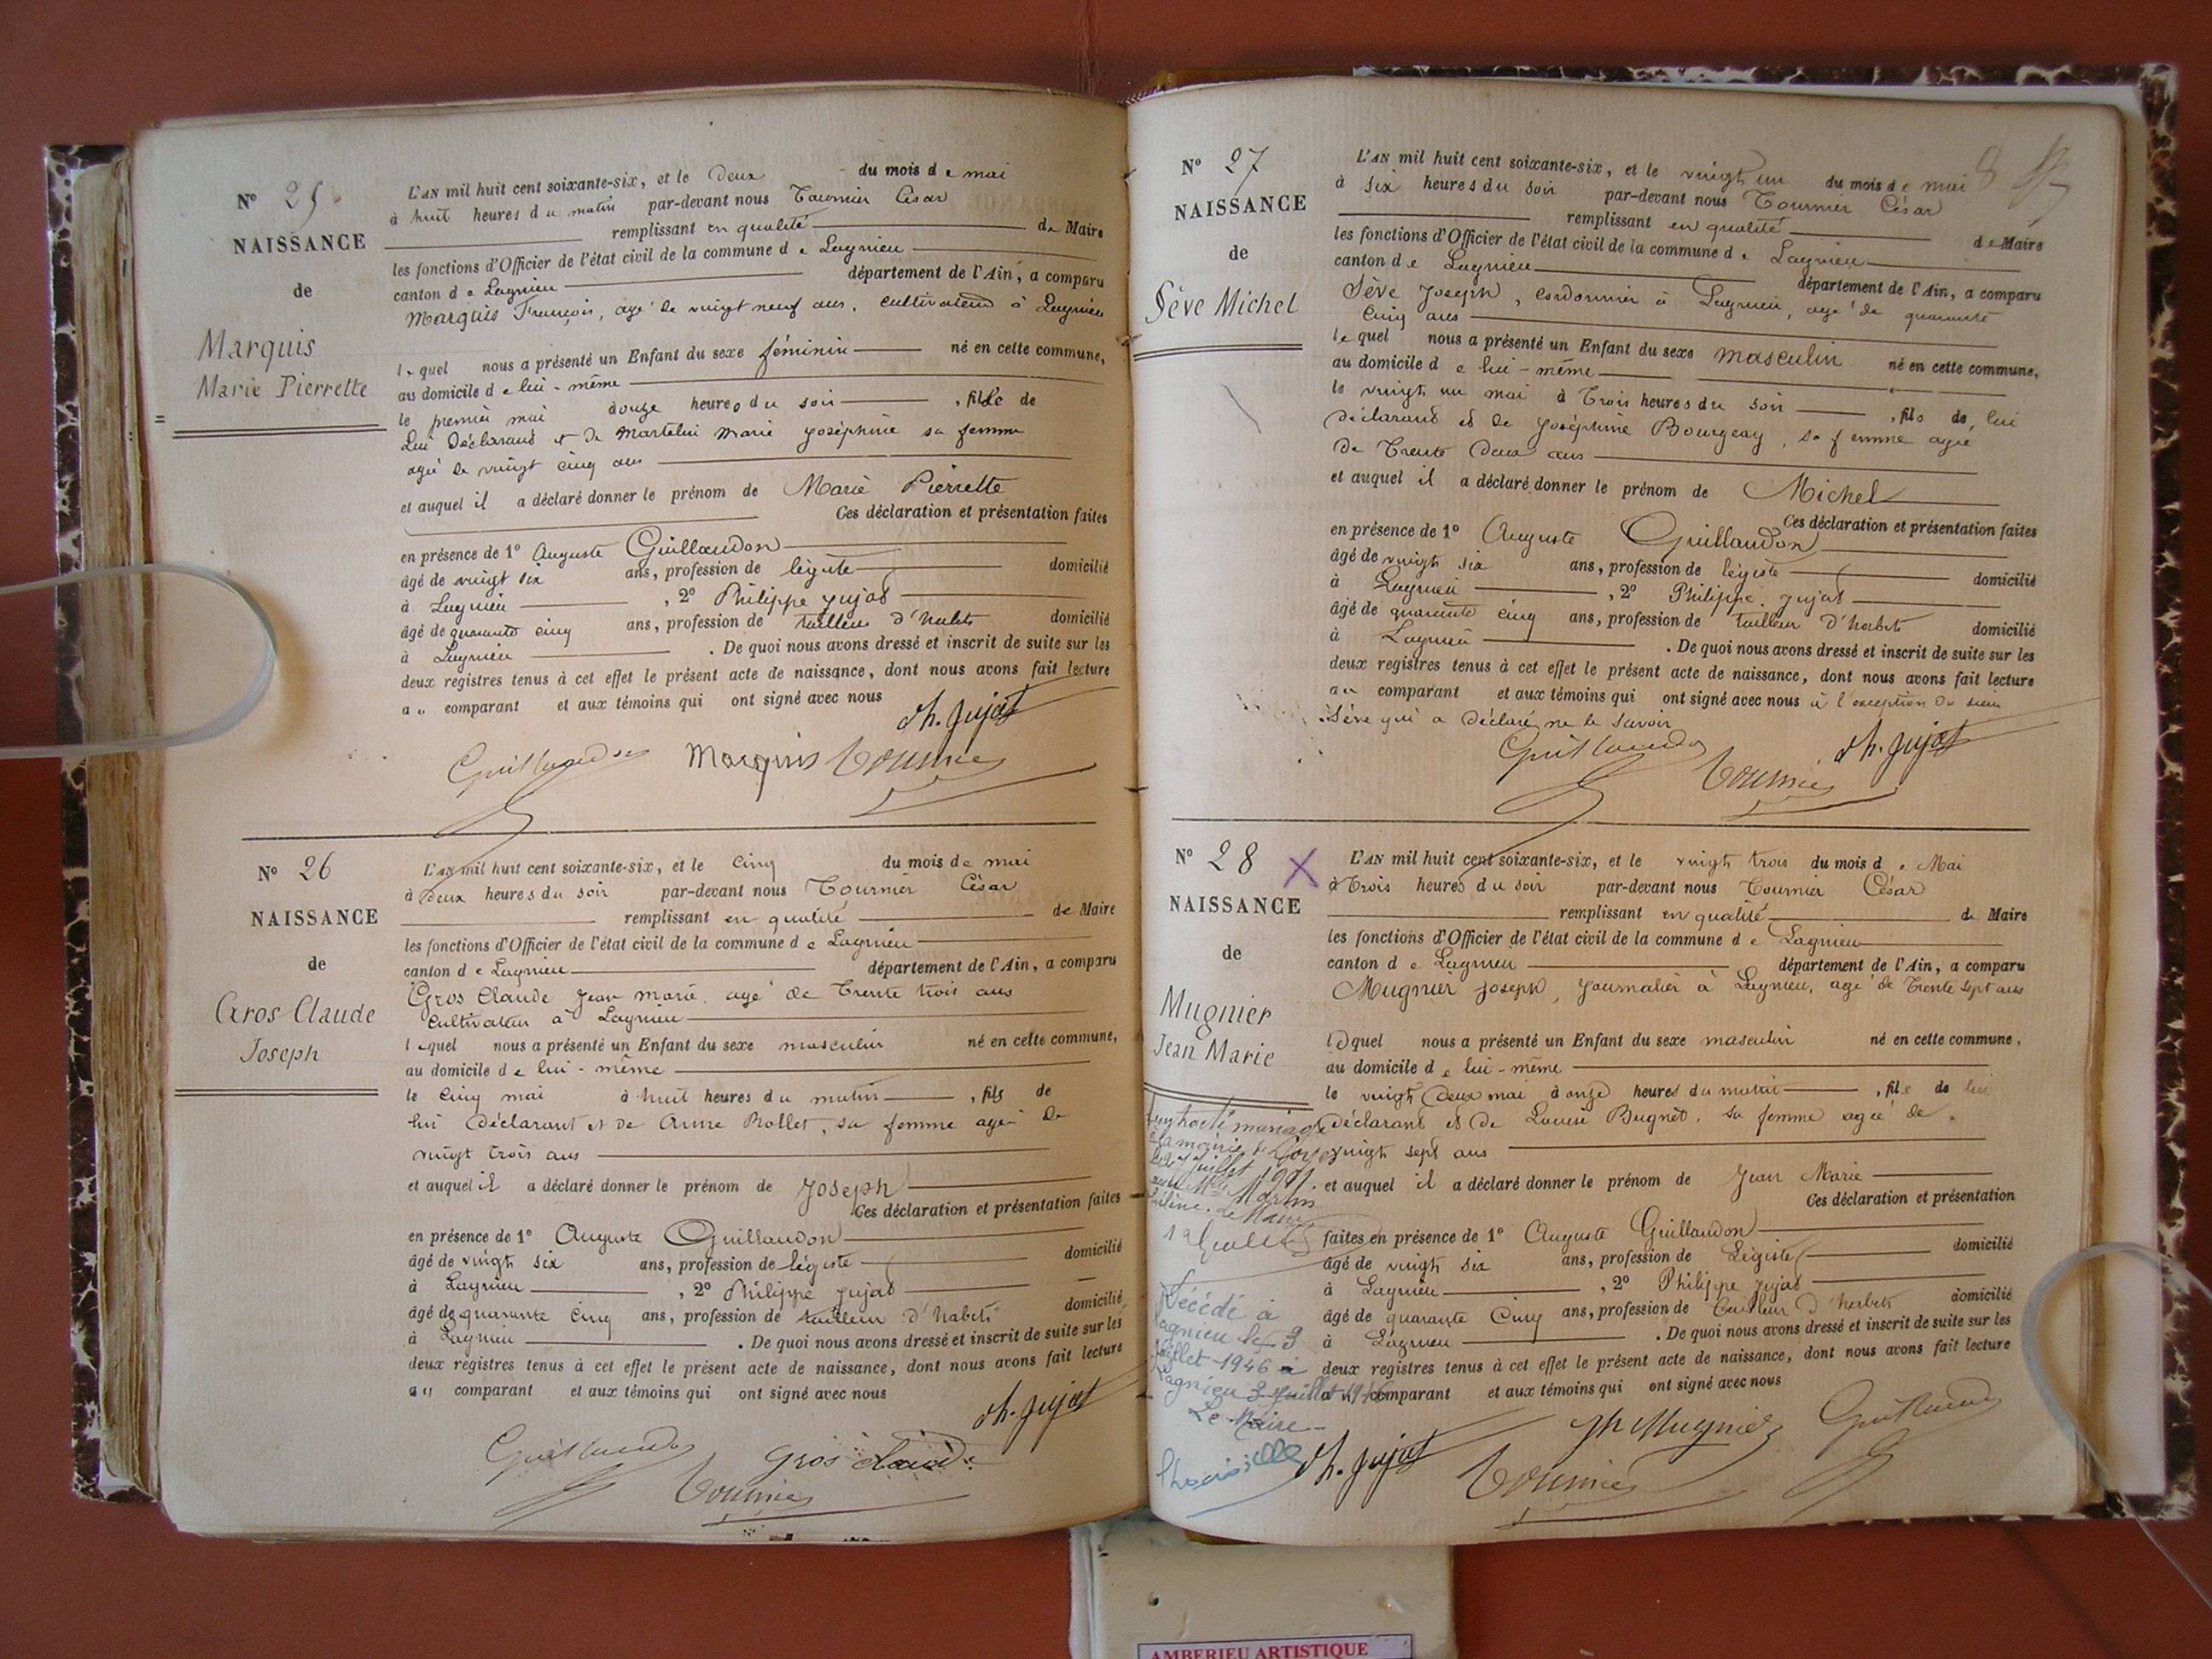 N° 25
NAISSANCE
de
Marquis
Marie Pierrette
L'AN mil huit cent soixante-six, et le Deux du mois de mai
à huit heures du matin par-devant nous Tournier César
remplissant en qualité de Maire
les fonctions d'Officier de l'état civil de la commune de Lagnieu
canton de Lagnieu département de l'Ain, a comparu
Marquis François, agé de vingt neuf ans, cultivateur à Lagnieu
lequel nous a présenté un Enfant du sexe féminin né en cette commune,
au domicile de lui-même
le premier mai douze heures du soir, fille de
Lui Déclarant et de Martelin Marie Joséphine sa femme
agée de vingt cinq ans
et auquel il a déclaré donner le prénom de Marie Pierrette
Ces déclaration et présentation faites
en présence de 1° Auguste Guillaudon
âgé de vingt six ans, profession de légiste domicilié
à Lagnieu, 2° Philippe Jujat
âgé de quarante cinq ans, profession de tailleur d'habits domicilié
à Lagnieu. De quoi nous avons dressé et inscrit de suite sur les
deux registres tenus à cet effet le présent acte de naissance, dont nous avons fait lecture
au comparant et aux témoins qui ont signé avec nous
Ph. Jujat
Guillaudon Marquis Tournier
N° 26
NAISSANCE
de
Gros Claude
Joseph
L'AN mil huit cent soixante-six, et le Cinq du mois de mai
à Deux heures du soir par-devant nous Tournier César
remplissant en qualité de Maire
les fonctions d'Officier de l'état civil de la commune de Lagnieu
canton de Lagnieu département de l'Ain, a comparu
Gros Claude Jean Marie, agé de Trente trois ans
Cultivateur à Lagnieu
lequel nous a présenté un Enfant du sexe masculin né en cette commune,
au domicile de lui-même
le Cinq mai à huit heures du matin, fils de
lui Déclarant et de Anne Rollet, sa femme agée de
vingt trois ans
et auquel il a déclaré donner le prénom de Joseph
Ces déclaration et présentation faites
en présence de 1° Auguste Guillaudon
âgé de vingt six ans, profession de légiste domicilié
à Lagnieu, 2° Philippe Jujat
âgé de quarante Cinq ans, profession de tailleur d'habits domicilié
à Lagnieu. De quoi nous avons dressé et inscrit de suite sur les
deux registres tenus à cet effet le présent acte de naissance, dont nous avons fait lecture
au comparant et aux témoins qui ont signé avec nous
Ph. Jujat
Guillaudon Gros Claude
Tournier
N° 27
NAISSANCE
de
Sève Michel
L'AN mil huit cent soixante-six, et le vingt un du mois de mai
à six heures du soir par-devant nous Tournier César
remplissant en qualité de Maire
les fonctions d'Officier de l'état civil de la commune de Lagnieu
canton de Lagnieu département de l'Ain, a comparu
Sève Joseph, Cordonnier à Lagnieu, agé de quarante
Cinq ans
lequel nous a présenté un Enfant du sexe masculin né en cette commune,
au domicile de lui-même
le vingt un mai à Trois heures du soir, fils de lui
déclarant et de Joséphine Bourgeay, sa femme agée
de Trente Deux ans
et auquel il a déclaré donner le prénom de Michel
Ces déclaration et présentation faites
en présence de 1° Auguste Guillaudon
âgé de vingt six ans, profession de légiste domicilié
à Lagnieu, 2° Philippe Jujat
âgé de quarante cinq ans, profession de tailleur d'habits domicilié
à Lagnieu. De quoi nous avons dressé et inscrit de suite sur les
deux registres tenus à cet effet le présent acte de naissance, dont nous avons fait lecture
au comparant et aux témoins qui ont signé avec nous à l'exception du sieur
Sève qui a déclaré ne le savoir
Guillaudon Tournier Ph. Jujat
N° 28
NAISSANCE
de
Mugnier
Jean Marie
L'AN mil huit cent soixante-six, et le vingt trois du mois de Mai
à Trois heures du soir par-devant nous Tournier César
remplissant en qualité de Maire
les fonctions d'Officier de l'état civil de la commune de Lagnieu
canton de Lagnieu département de l'Ain, a comparu
Mugnier Joseph, Journalier à Lagnieu, agé de Trente sept ans
lequel nous a présenté un Enfant du sexe masculin né en cette commune,
au domicile de lui-même
le vingt Deux mai à onze heures du matin, fils de lui
déclarant et de Louise Bugnet, sa femme agée de
vingt sept ans
et auquel il a déclaré donner le prénom de Jean Marie
Ces déclaration et présentation
faites en présence de 1° Auguste Guillaudon
âgé de vingt six ans, profession de Légiste domicilié
à Lagnieu, 2° Philippe Jujat
âgé de quarante Cinq ans, profession de Tailleur d'habits domicilié
à Lagnieu. De quoi nous avons dressé et inscrit de suite sur les
deux registres tenus à cet effet le présent acte de naissance, dont nous avons fait lecture
au comparant et aux témoins qui ont signé avec nous
Ph. Jujat Tournier Jh Mugnier Guillaudon
contracté mariage
à la mairie de
juillet
avec Martin
Hélène. Le Maire
Décédé à
Lagnieu le 3
Juillet 1946
Lagnieu 3 Juillet 1946
Le Maire
AMBERIEU ARTISTIQUE